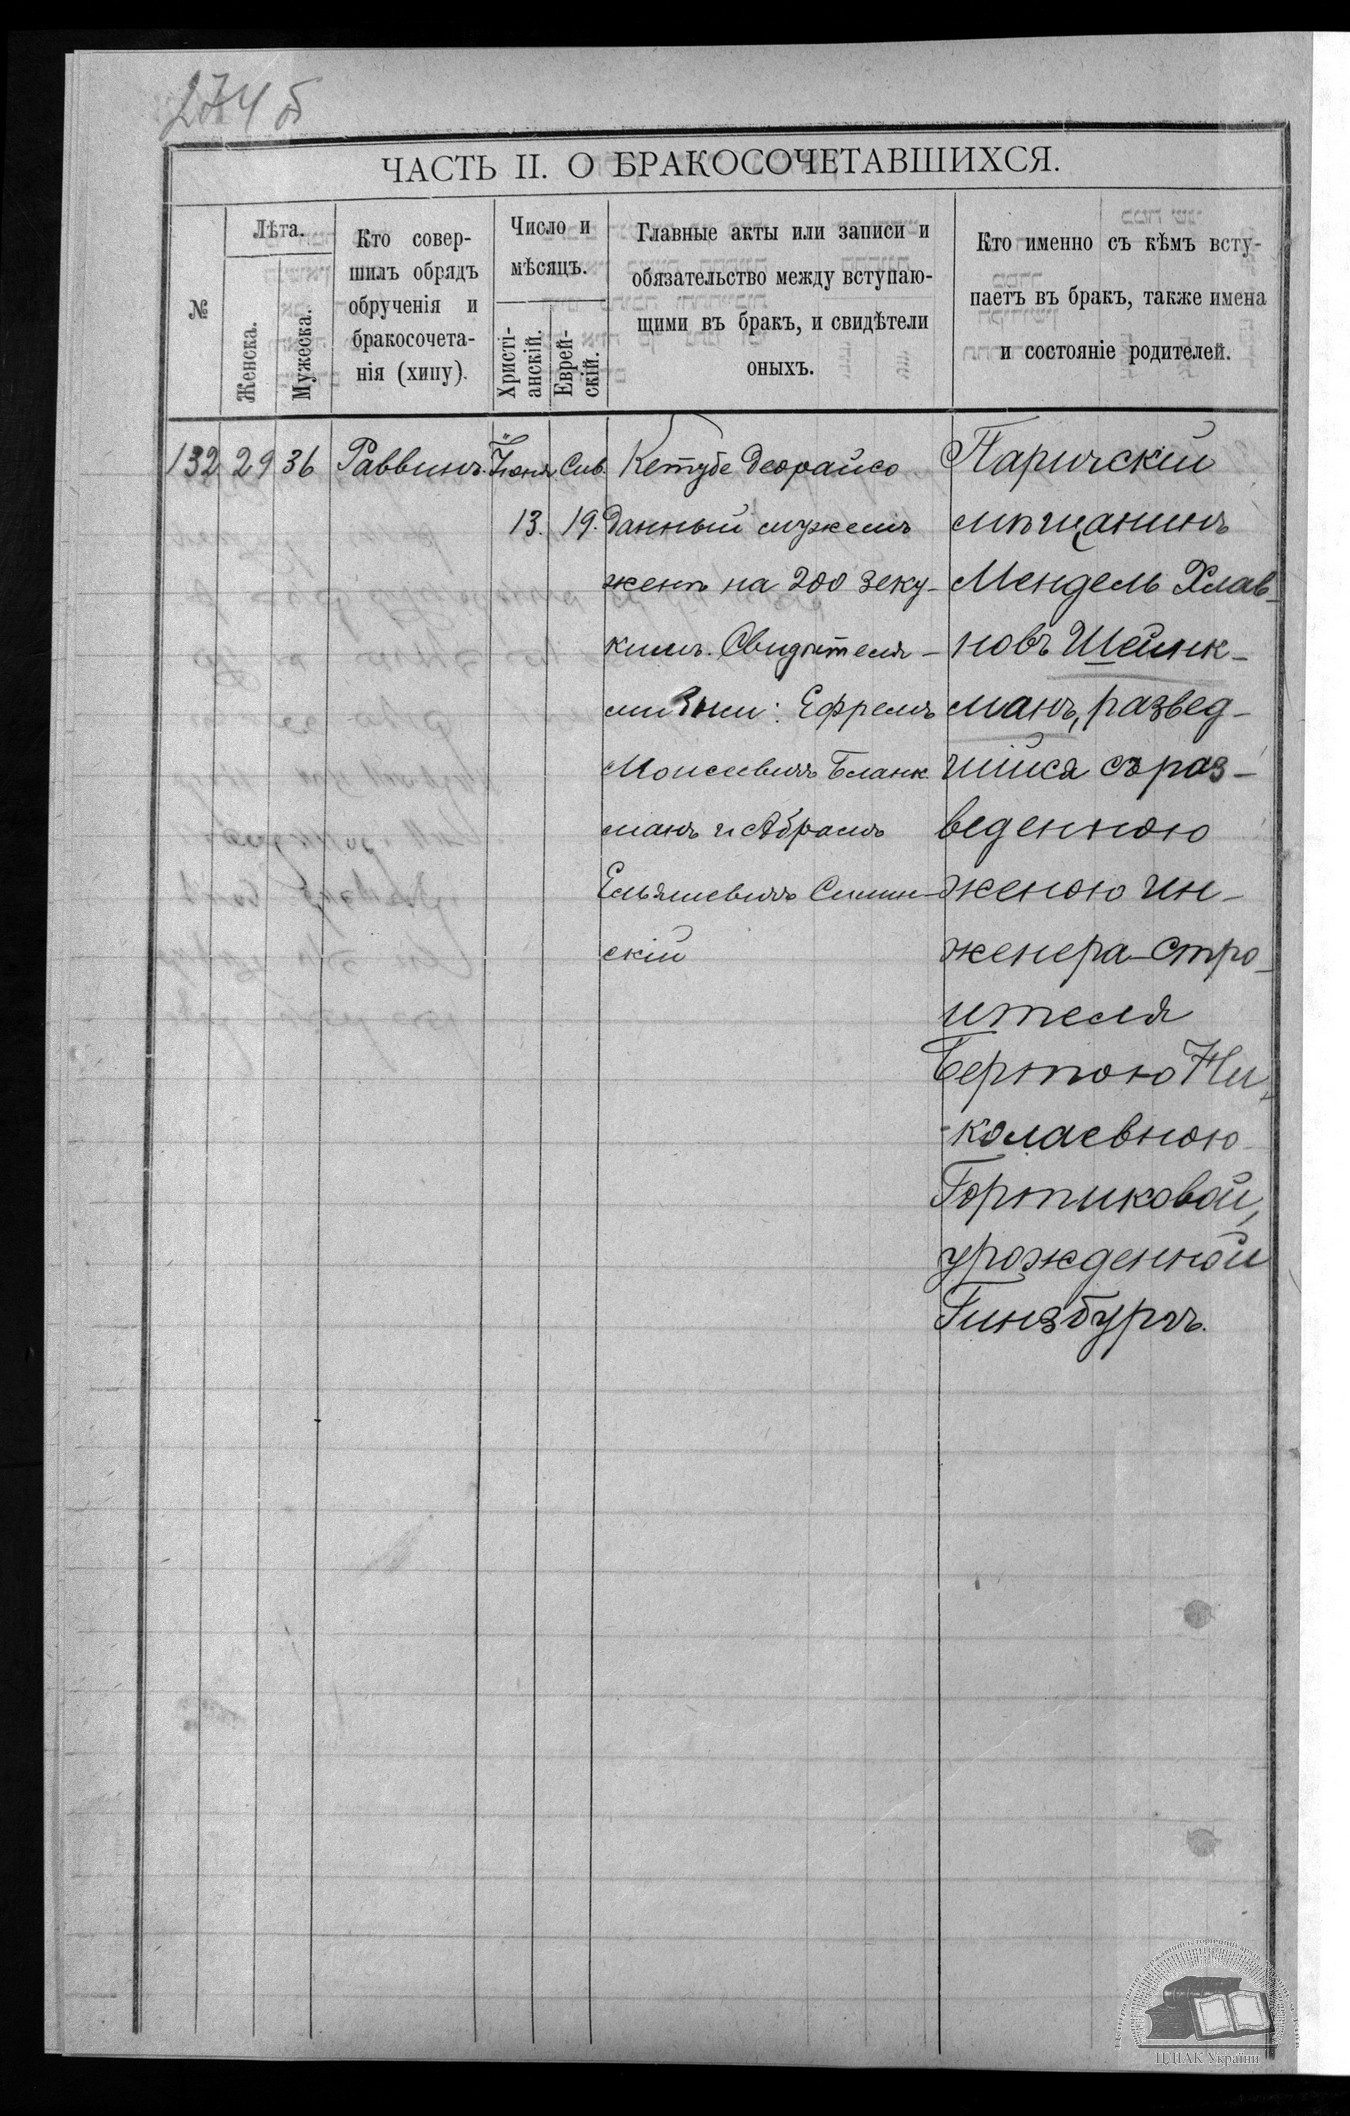 274 б
ЧАСТЬ II. О БРАКОСОЧЕТАВШИХСЯ.
№
Лѣта.
Женска.
Мужеска.
Кто совер-
шилъ обрядъ
обрученія и
бракосочета-
нія (хипу).
Число и
мѣсяцъ.
Христі-
анскій.
Еврей-
скій.
Главные акты или записи и
обязательство между вступаю-
щими въ бракъ, и свидѣтели
оныхъ.
Кто именно съ кѣмъ всту-
паетъ въ бракъ, также имена
и состояніе родителей.
132 29 36 Раввинъ. Іюня Сив.
13. 19.
Кетубе деорайсо
данный мужемъ
женѣ на 200 зеку-
кимъ. Свидѣтеля-
ми были: Ефремъ
Моисеевичъ Бланк
манъ и Абрамъ
Ельяшевичъ Слинин-
скій
Паричскій
мѣщанинъ
Мендель Хлав-
новъ Шейнк-
манъ, развед-
шійся съ раз-
веденною
женою ин-
женера-стро-
ителя
Бертою Ни-
колаевною
Гортиковой,
урожденной
Гинзбургъ.
ЦДІАК України